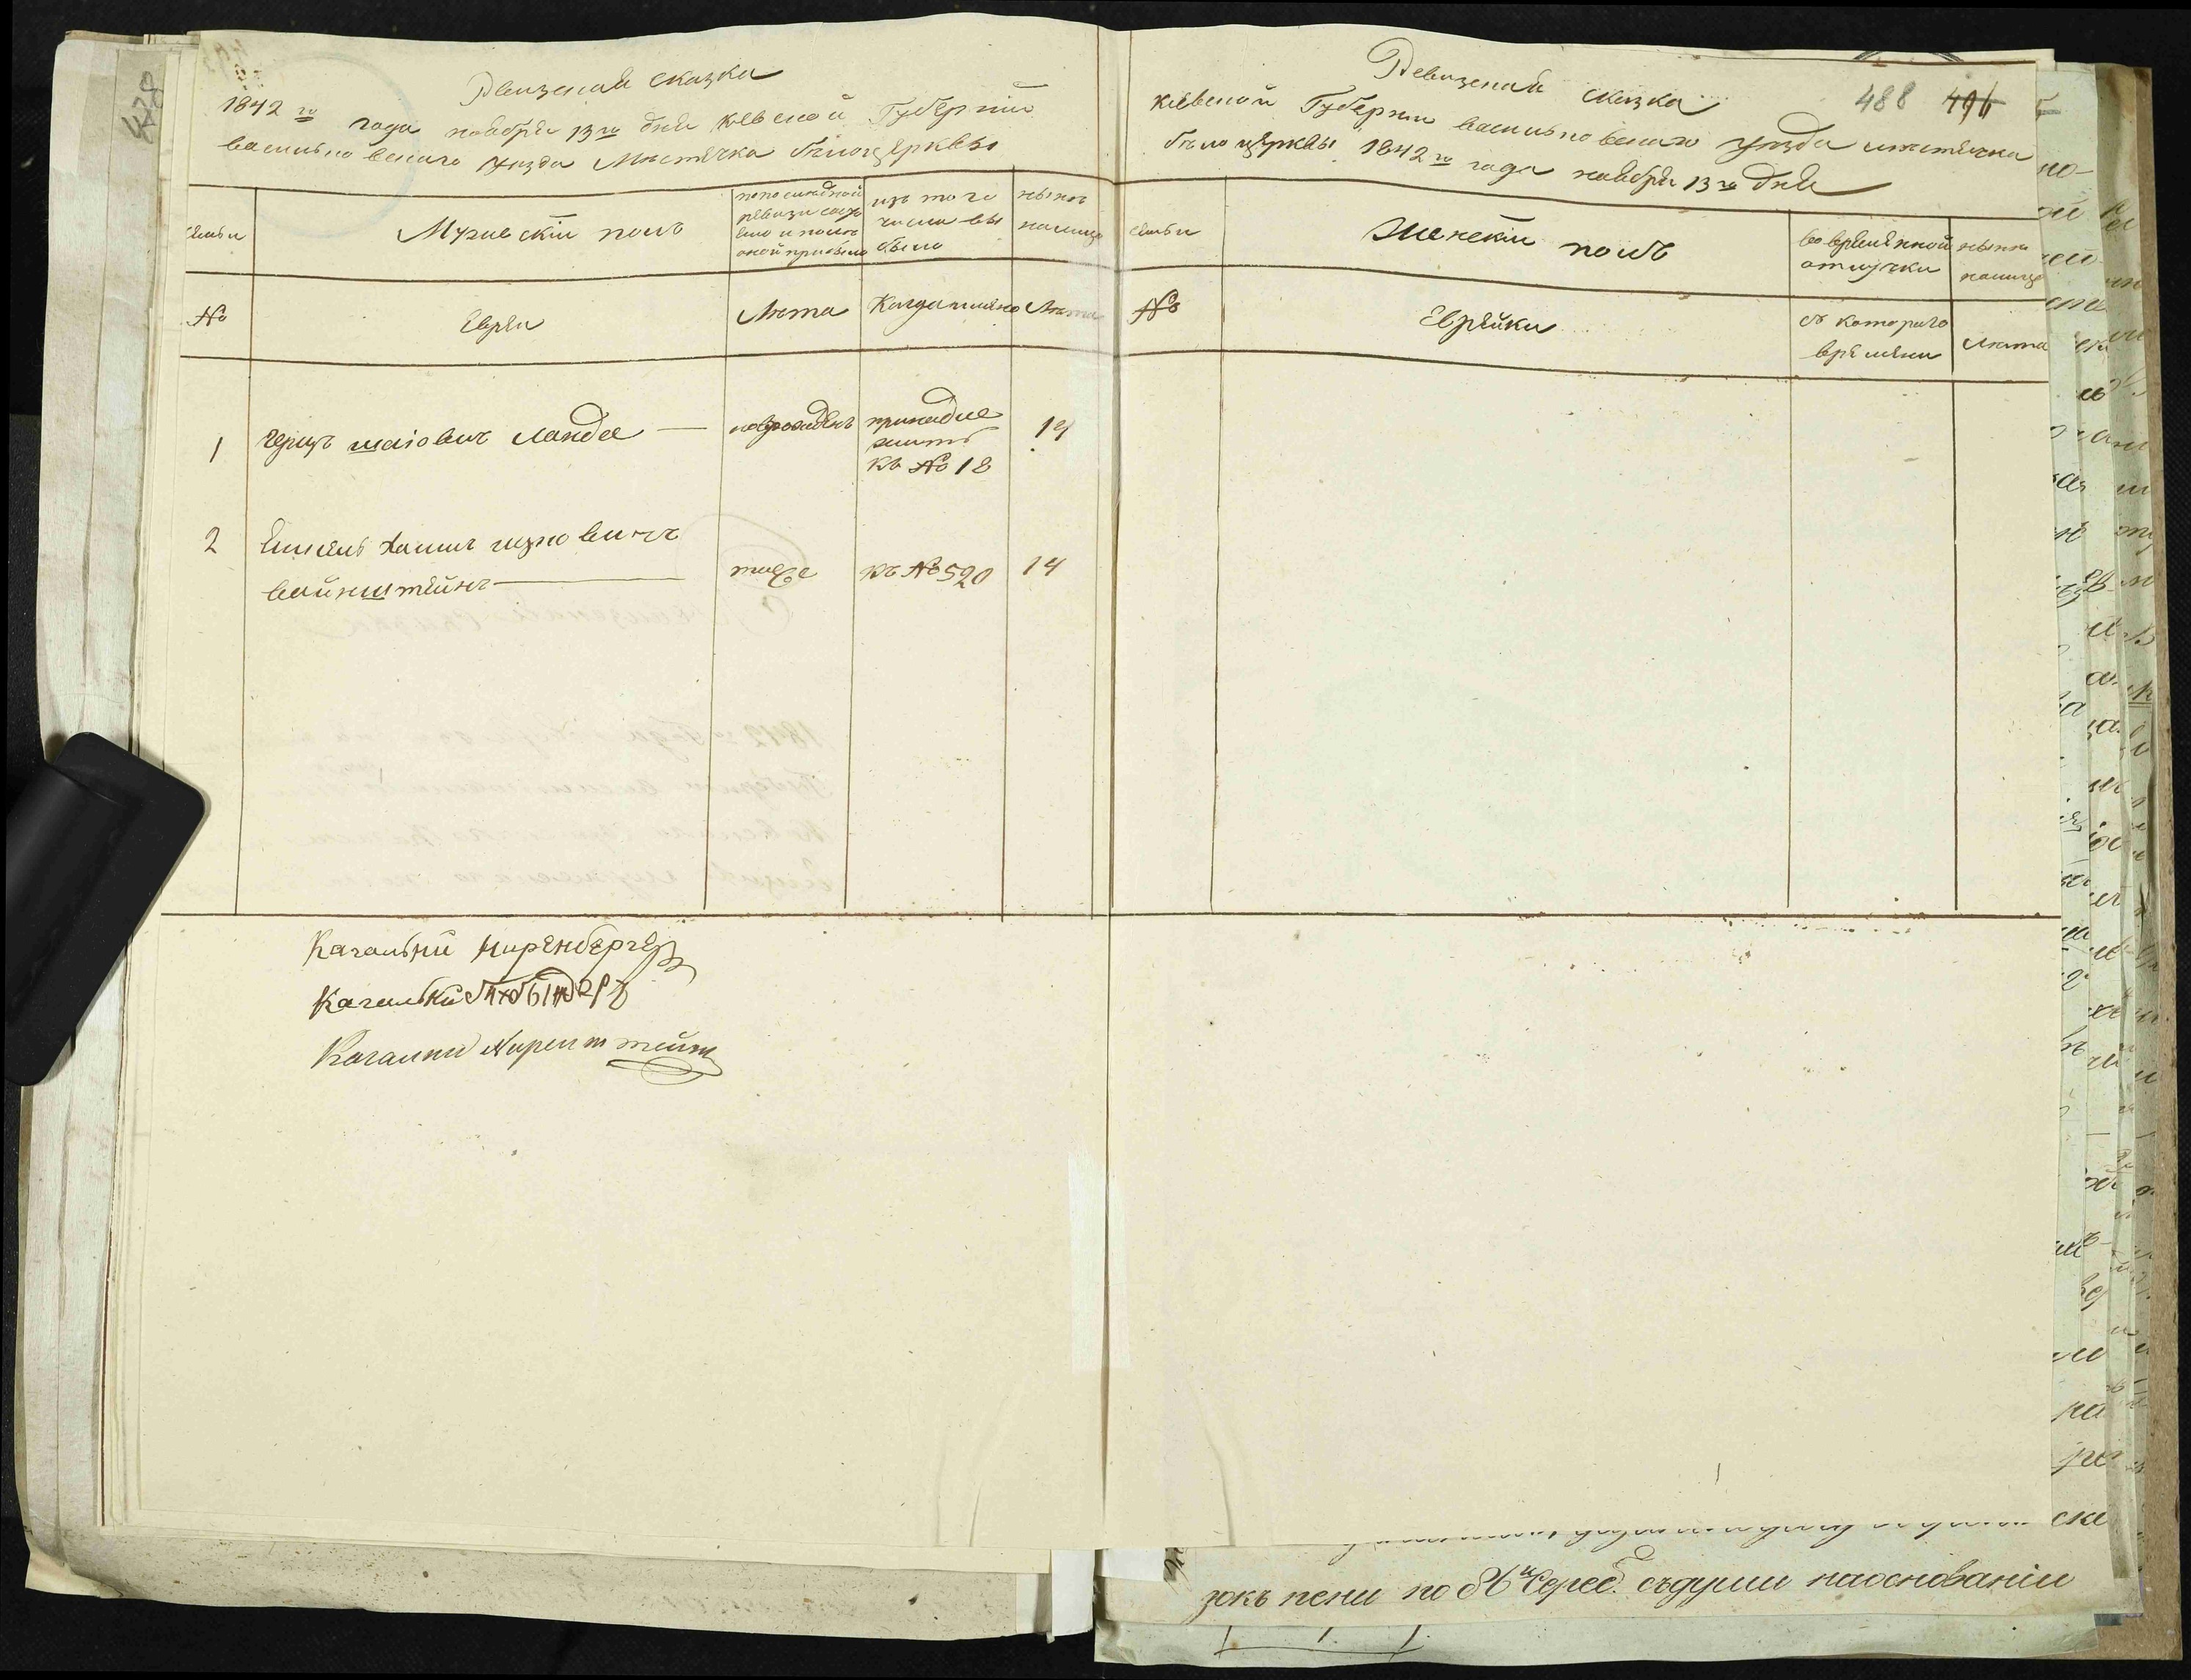 Ревизская сказка
1842го года ноября 13го дня киевской Губернии
васильковского уезда Местечка белоцерквы
семьи
Мужескій полъ
по последной
ревизи сост
ояло и после
оной прибыло
изъ того
числа вы
было
ныне
налицо
№
Евреи
Лета
Когда именно
Лета
1
Герцъ шаіовичъ Ландае
новорожденъ
принадле
житъ
къ № 18
19
2
Ениель Хаимъ
вайнштейнъ
тоже
къ № 520
14
Кагальный Киренбергеръ
Кагальный
Кагальный Киренштейнъ
Ревизская сказка
488 496
Кіевской Губернии васильковского уезда местечка
белоцерквы 1842го года ноября 13го дня
семьи
Женскій полъ
во временной
отлучки
ныне
налицо
№
Еврейки
съ котораго
времени
Лета
зокъ пени по 86 к Сереб. съ души на основаніи
478